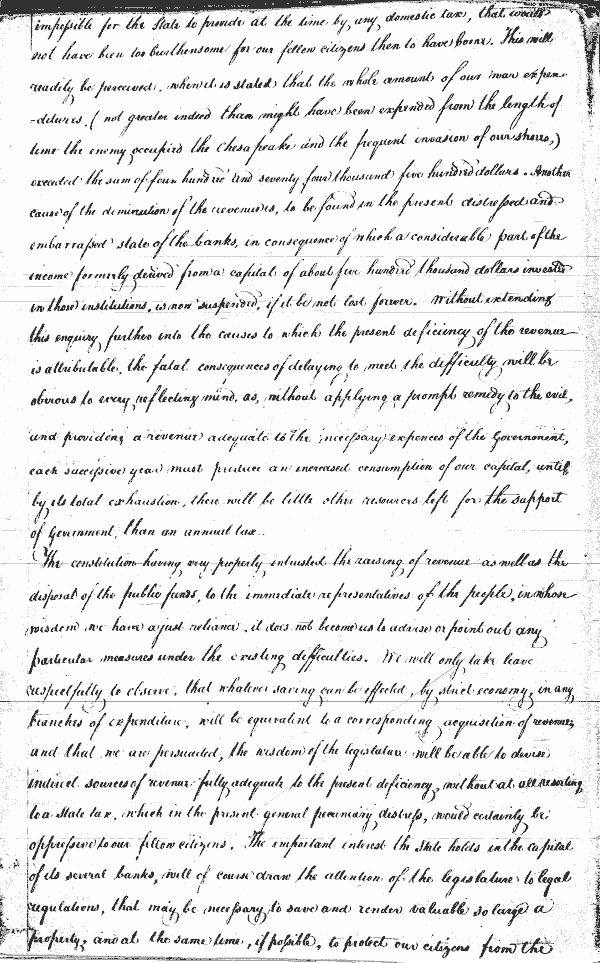 impossible for the State to provide at the time by any domestic tax, that would
not have been too burthensome for our fellow citizens then to have borne. This will
readily be perceived, when it is stated that the whole amount of our war expen-
-ditures, (not greater indeed than might have been expended from the length of
time the enemy occupied the Chesapeake and the frequent invasion of our shores,)
exceeded the sum of four hundred and seventy four thousand five hundred dollars. Another
cause of the diminution of the revenue is, to be found in the present distressed and
embarrassed state of the banks, in consequence of which a considerable part of the
income formerly derived from a capital of about five hundred thousand dollars invested
in those institutions, is now suspended, if it be not lost forever. Without extending
this enquiry further into the causes to which the present deficiency of the revenue
is attributable, the fatal consequences of delaying to meet the difficulty, will be
obvious to every reflecting mind, as, without applying a prompt remedy to the evil,
and providing a revenue adequate to the necessary expences of the Government,
each successive year must produce an increased consumption of our capital, until,
by its total exhaustion, there will be little other resources left for the support
of Government, than an annual tax.
The constitution having very properly intrusted the raising of revenue as well as the
disposal of the public funds, to the immediate representatives of the people, in whose
wisdom we have a just reliance, it does not become us to advise or point out any
particular measures under the existing difficulties. We will only take leave
respectfully to observe, that whatever saving can be effected, by strict economy, in any
branches of expenditure, will be equivalent to a corresponding acquisition of revenue,
and that we are persuaded, the wisdom of the legislature will be able to devise
indirect sources of revenue fully adequate to the present deficiency, without at all resorting
to a State tax, which in the present general pecuniary distress, would certainly be
oppressive to our fellow citizens. The important interest the State holds in the capital
of its several banks, will of course draw the attention of the legislature to legal
regulations, that may be necessary to save and render valuable so large a
property, and at the same time, if possible, to protect our citizens from the